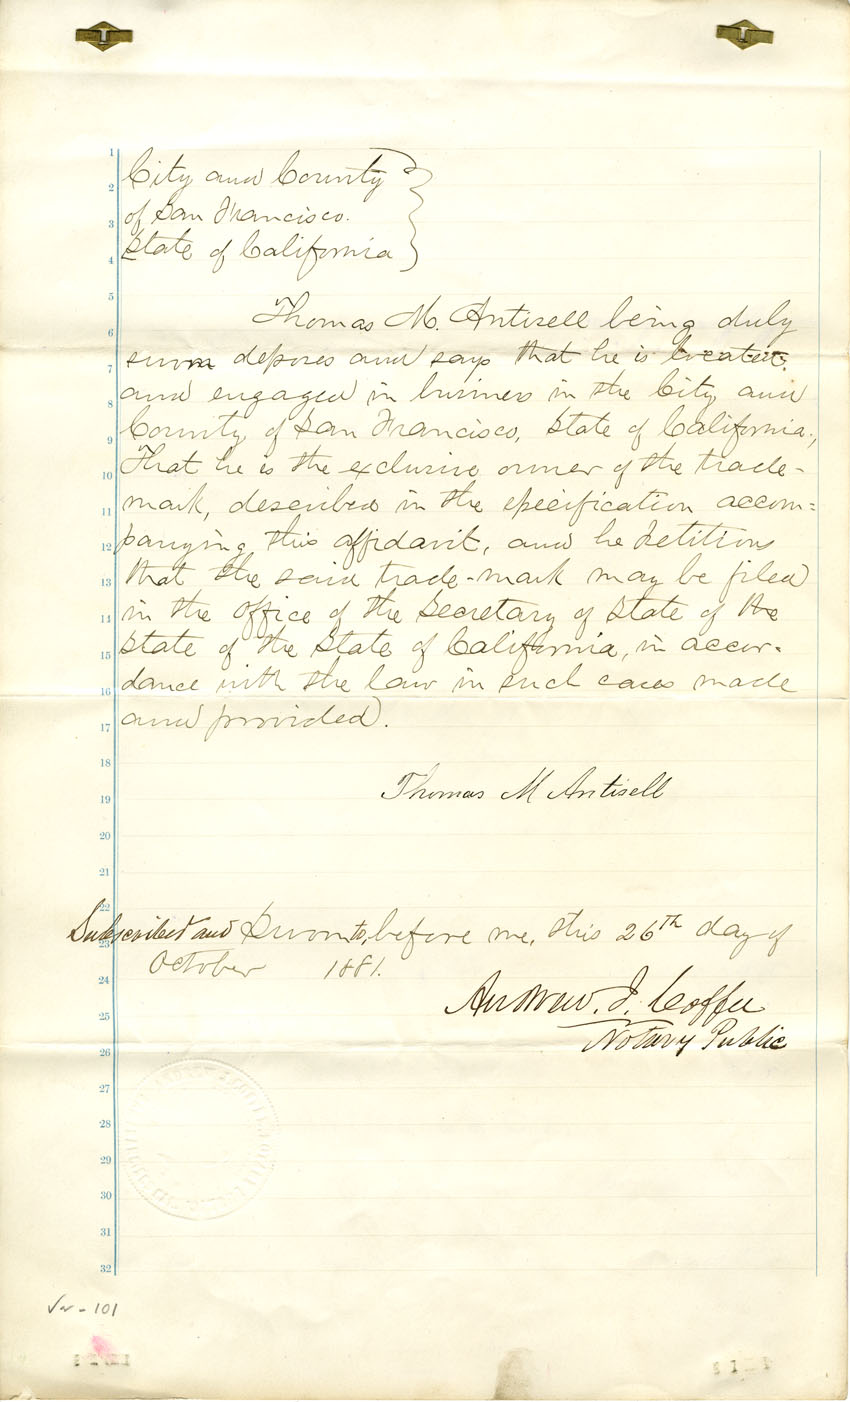 City and County
of San Francisco.
State of California
Thomas M. Antisell being duly
sworn deposes and says that he is located
and engaged in business in the City and
County of San Francisco, State of California,
That he is the exclusive owner of the trade-
mark, described in the specification accom=
panying this affidavit, and he petitions
that the said trade-mark may be filed
in the office of the Secretary of State of the
State of the State of California, in accor-
dance with the law in such cases made
and provided.
Thomas M Antisell
Subscribed and Sworn to, before me, this 26th day of
October 1881.
Andrew. J. Coffee
Notary Public
1
2
3
4
5
6
7
8
9
10
11
12
13
14
15
16
17
18
19
20
21
22
23
24
25
26
27
28
29
30
31
32
101